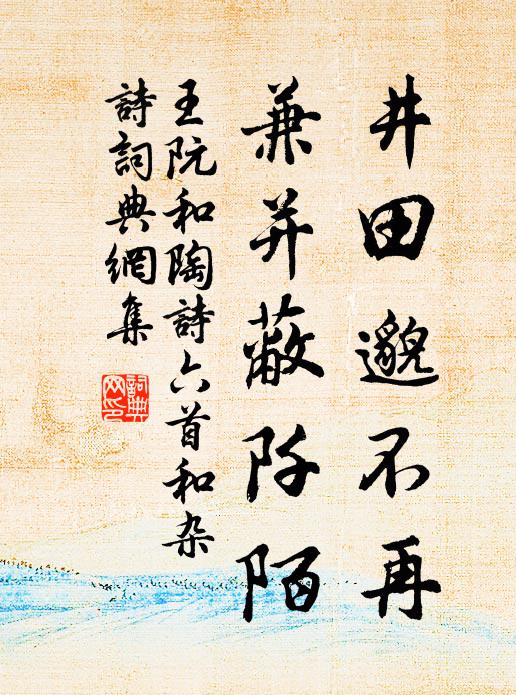 井田邈不再
兼并蔽阡陌
王阮和陶詩六首和杂
詩詞典網集
詞典网印